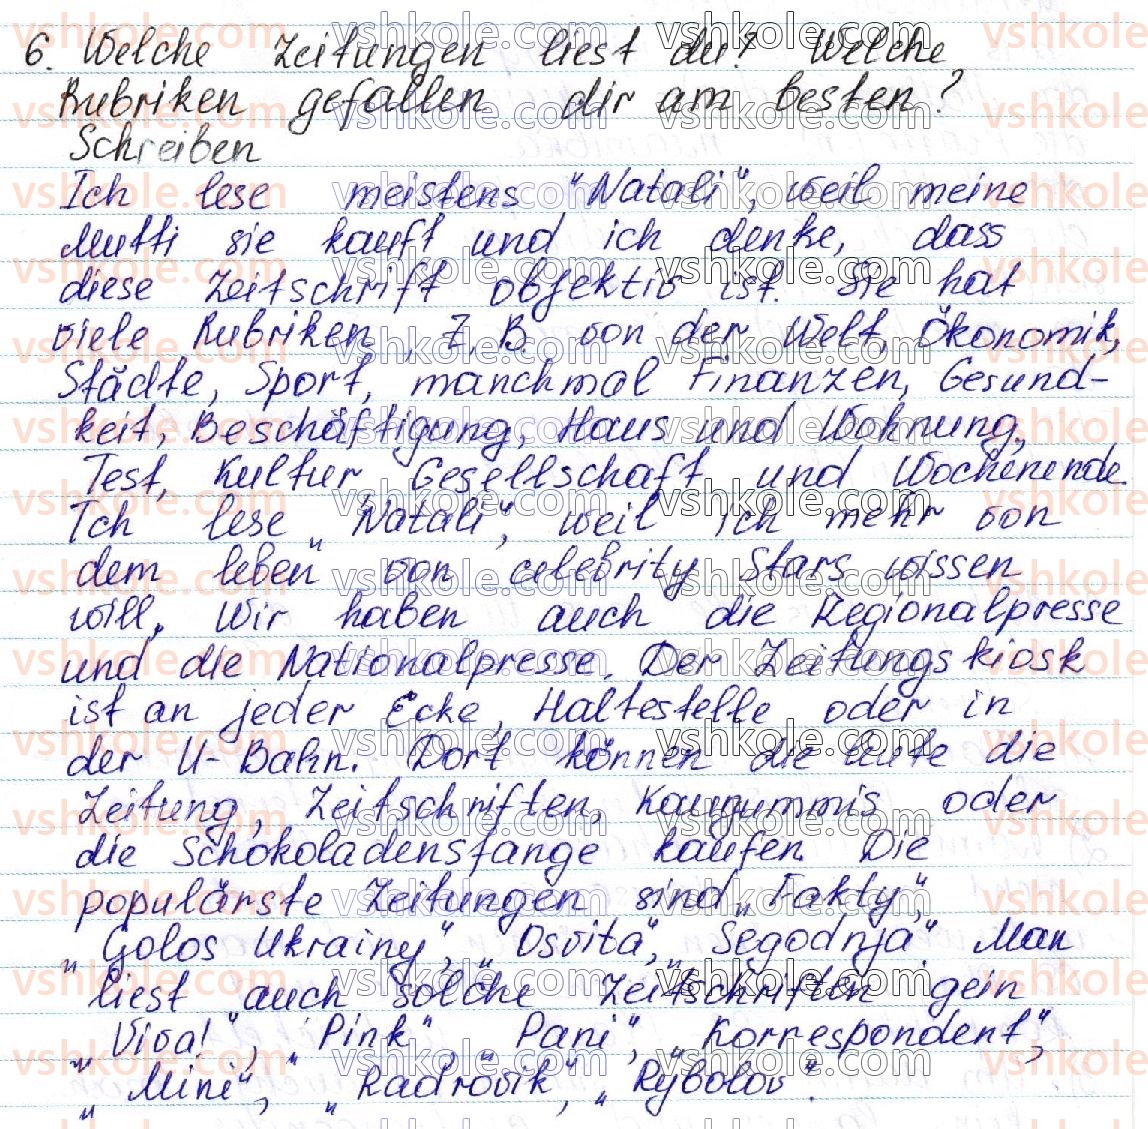 6. Welche Zeitungen liest du? Welche
Rubriken gefallen dir am besten?
Schreiben
Ich lese meistens "Natali", weil meine
Mutti sie kauft und ich denke, dass
diese Zeitschrift objektiv ist. Sie hat
viele Rubriken, Z. B. von der Welt, Ökonomik,
Städte, Sport, manchmal Finanzen, Gesund-
keit, Beschäftigung, Haus und Wohnung,
Test, Kultur, Gesellschaft und Wochenende.
Ich lese „Natali", weil ich mehr von
dem leben von celebrity Stars wissen
will. Wir haben auch die Regionalpresse
und die Nationalpresse. Der Zeitungskiosk
ist an jeder Ecke, Haltestelle oder in
der U-Bahn. Dort können die leute die
Zeitung, Zeitschriften, Kaugummis oder
die Schokoladenstange kaufen. Die
populärste Zeitungen sind „Fakty",
„Golos Ukrainy", „Osvita", „Segodnja". Man
liest auch solche Zeitschriften gein
„Viva!", „Pink", „Pani", „Korrespondent",
„Mini", „Radrovik", „Rybolov".